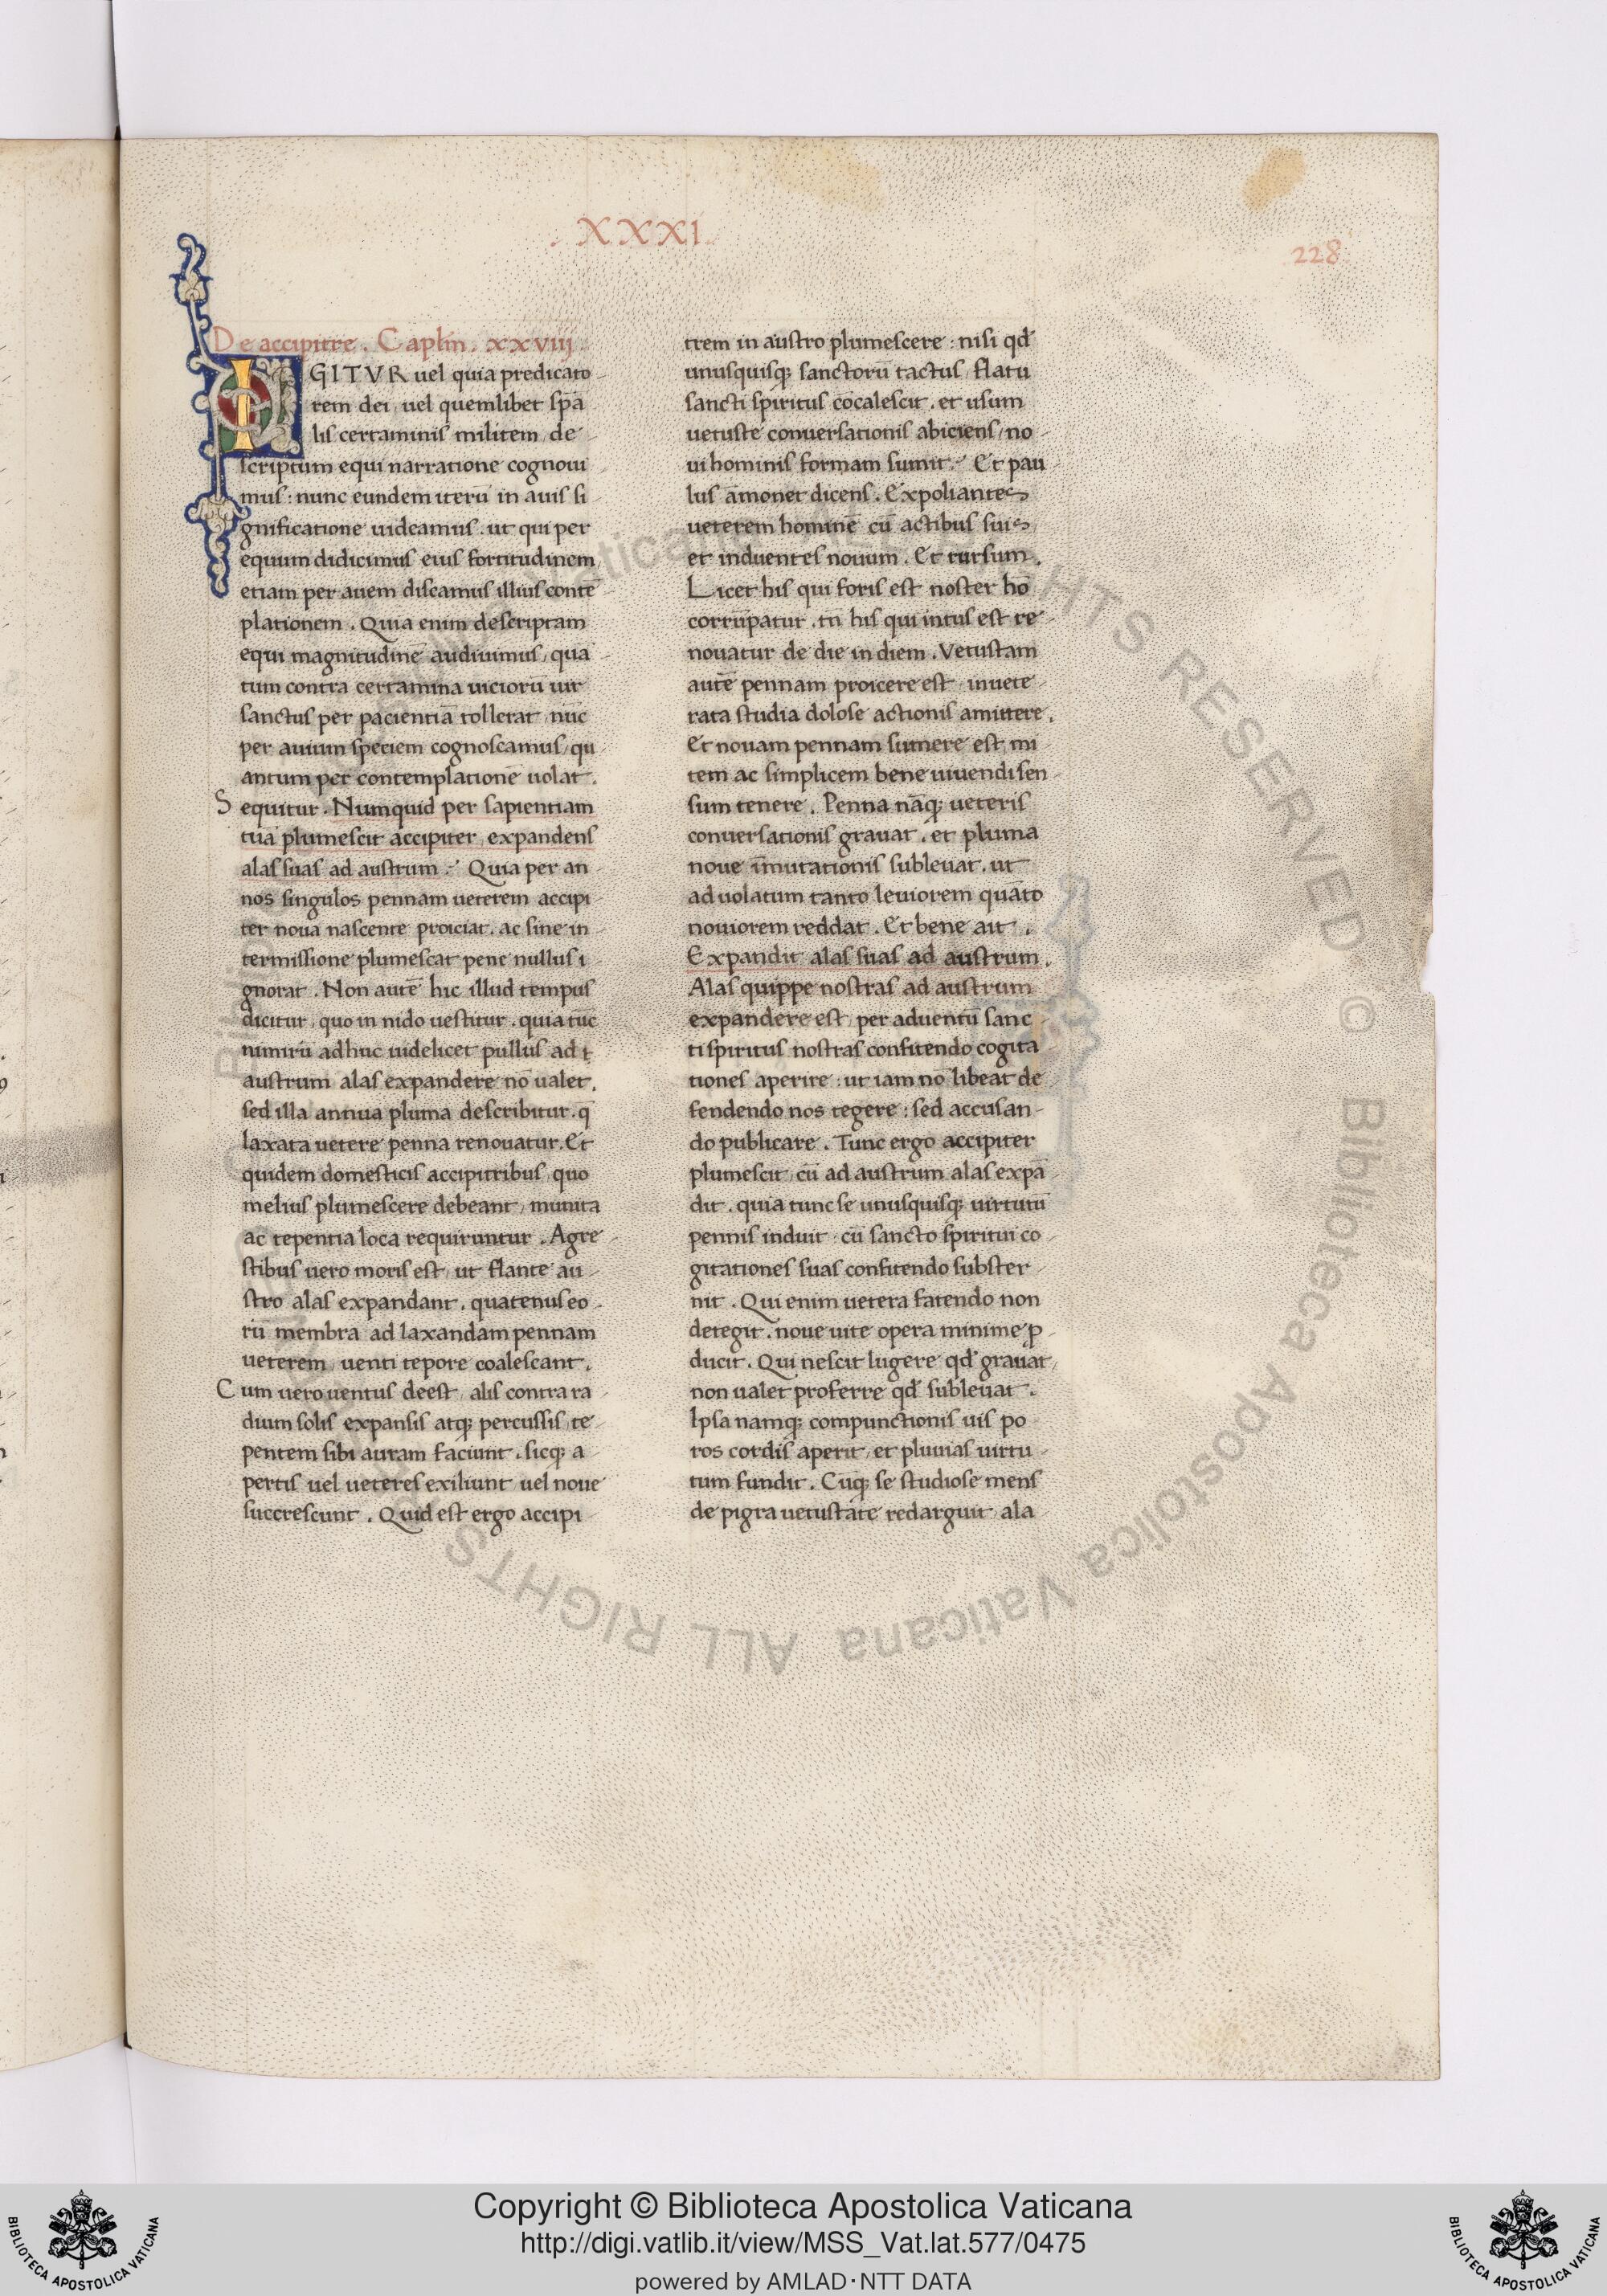 . XXXI.
228
De accipitre . Caplm̄ . xxviij.
IGITVR uel quia predicato
rem dei, uel quemlibet sp̄a
lis certaminis militem, de
scriptum equi narratione cognoui
mus : nunc eundem iterū in auis si
gnificatione uideamus . ut qui per
equum didicimus eius fortitudinem,
etiam per auem discamus illius conte
plationem . Quia enim descriptam
equi magnitudinē audiuimus, qua
tum contra certamina uiciorū uir
sanctus per pacientiā tollerat, nūc
per auium speciem cognoscamus, qu
antum per contemplationē uolat .
Sequitur . Numquid per sapientiam
tuā plumescit accipiter, expandens
alas suas ad austrum . Quia per an
nos singulos pennam ueterem accipi
ter noua nascente proiciat . ac sine in
termissione plumescat pene nullus i
gnorat . Non autē hic illud tempus
dicitur, quo in nido uestitur . quia tūc
nimirū adhuc uidelicet pullus ad
austrum alas expandere nō ualet .
sed illa annua pluma describitur . q̄
laxata uetere penna renouatur. Et
quidem domesticis accipitribus, quo
melius plumescere debeant, munita
ac tepentia loca requiruntur . Agre
stibus uero moris est, ut flante au
stro alas expandant . quatenus eo
rū membra ad laxandam pennam
ueterem, uenti tepore coalescant .
Cum uero uentus deest, alis contra ra
dium solis expansis atq; percussis, te
pentem sibi auram faciunt . sicq; a
pertis uel ueteres exiliunt uel noue
succrescunt . Quid est ergo accipi
trem in austro plumescere : nisi qd̄
unusquisq; sanctorū tactus, flatu
sancti spiritus cōcalescit . et usum
uetuste conuersationis abiciens, no
ui hominis formam sumit . Et pau
lus āmonet dicens . Expoliantes
ueterem hominē cū actibus suis,
et induentes nouum . Et rursum .
Licet his qui foris est noster hō
corrūpatur . tn̄ his qui intus est re
nouatur de die in diem . Vetustam
autē pennam proicere est, inuete
rata studia dolose actionis amittere .
Et nouam pennam sumere est, mi
tem ac simplicem bene uiuendi sen
sum tenere . Penna nāq; ueteris
conuersationis grauat . et pluma
noue īmutationis subleuat . ut
ad uolatum tanto leuiorem quāto
nouiorem reddat . Et bene ait .
Expandit alas suas ad austrum .
Alas quippe nostras ad austrum
expandere est, per aduentū sanc
ti spiritus nostras confitendo cogita
tiones aperire : ut iam nō libeat de
fendendo nos tegere : sed accusan-
do publicare . Tunc ergo accipiter
plumescit, cū ad austrum alas expā
dit . quia tunc se unusquisq; uirtutū
pennis induit, cū sancto spiritui co
gitationes suas confitendo subster
nit . Qui enim uetera fatendo non
detegit . noue uite opera minime p̄
ducit . Qui nescit lugere qd̄ grauat,
non ualet proferre qd̄ subleuat .
Ipsa namq; compunctionis uis po
ros cordis aperit, et plumas uirtu
tum fundit . Cūq; se studiose mens
de pigra uetustate redarguit, ala
Biblioteca Apostolica Vaticana ALL RIGHTS RESERVED © Biblioteca Apostolica Vaticana ALL RIGHTS
Copyright © Biblioteca Apostolica Vaticana
http://digi.vatlib.it/view/MSS_Vat.lat.577/0475
powered by AMLAD·NTT DATA
BIBLIOTECA APOSTOLICA VATICANA
BIBLIOTECA APOSTOLICA VATICANA